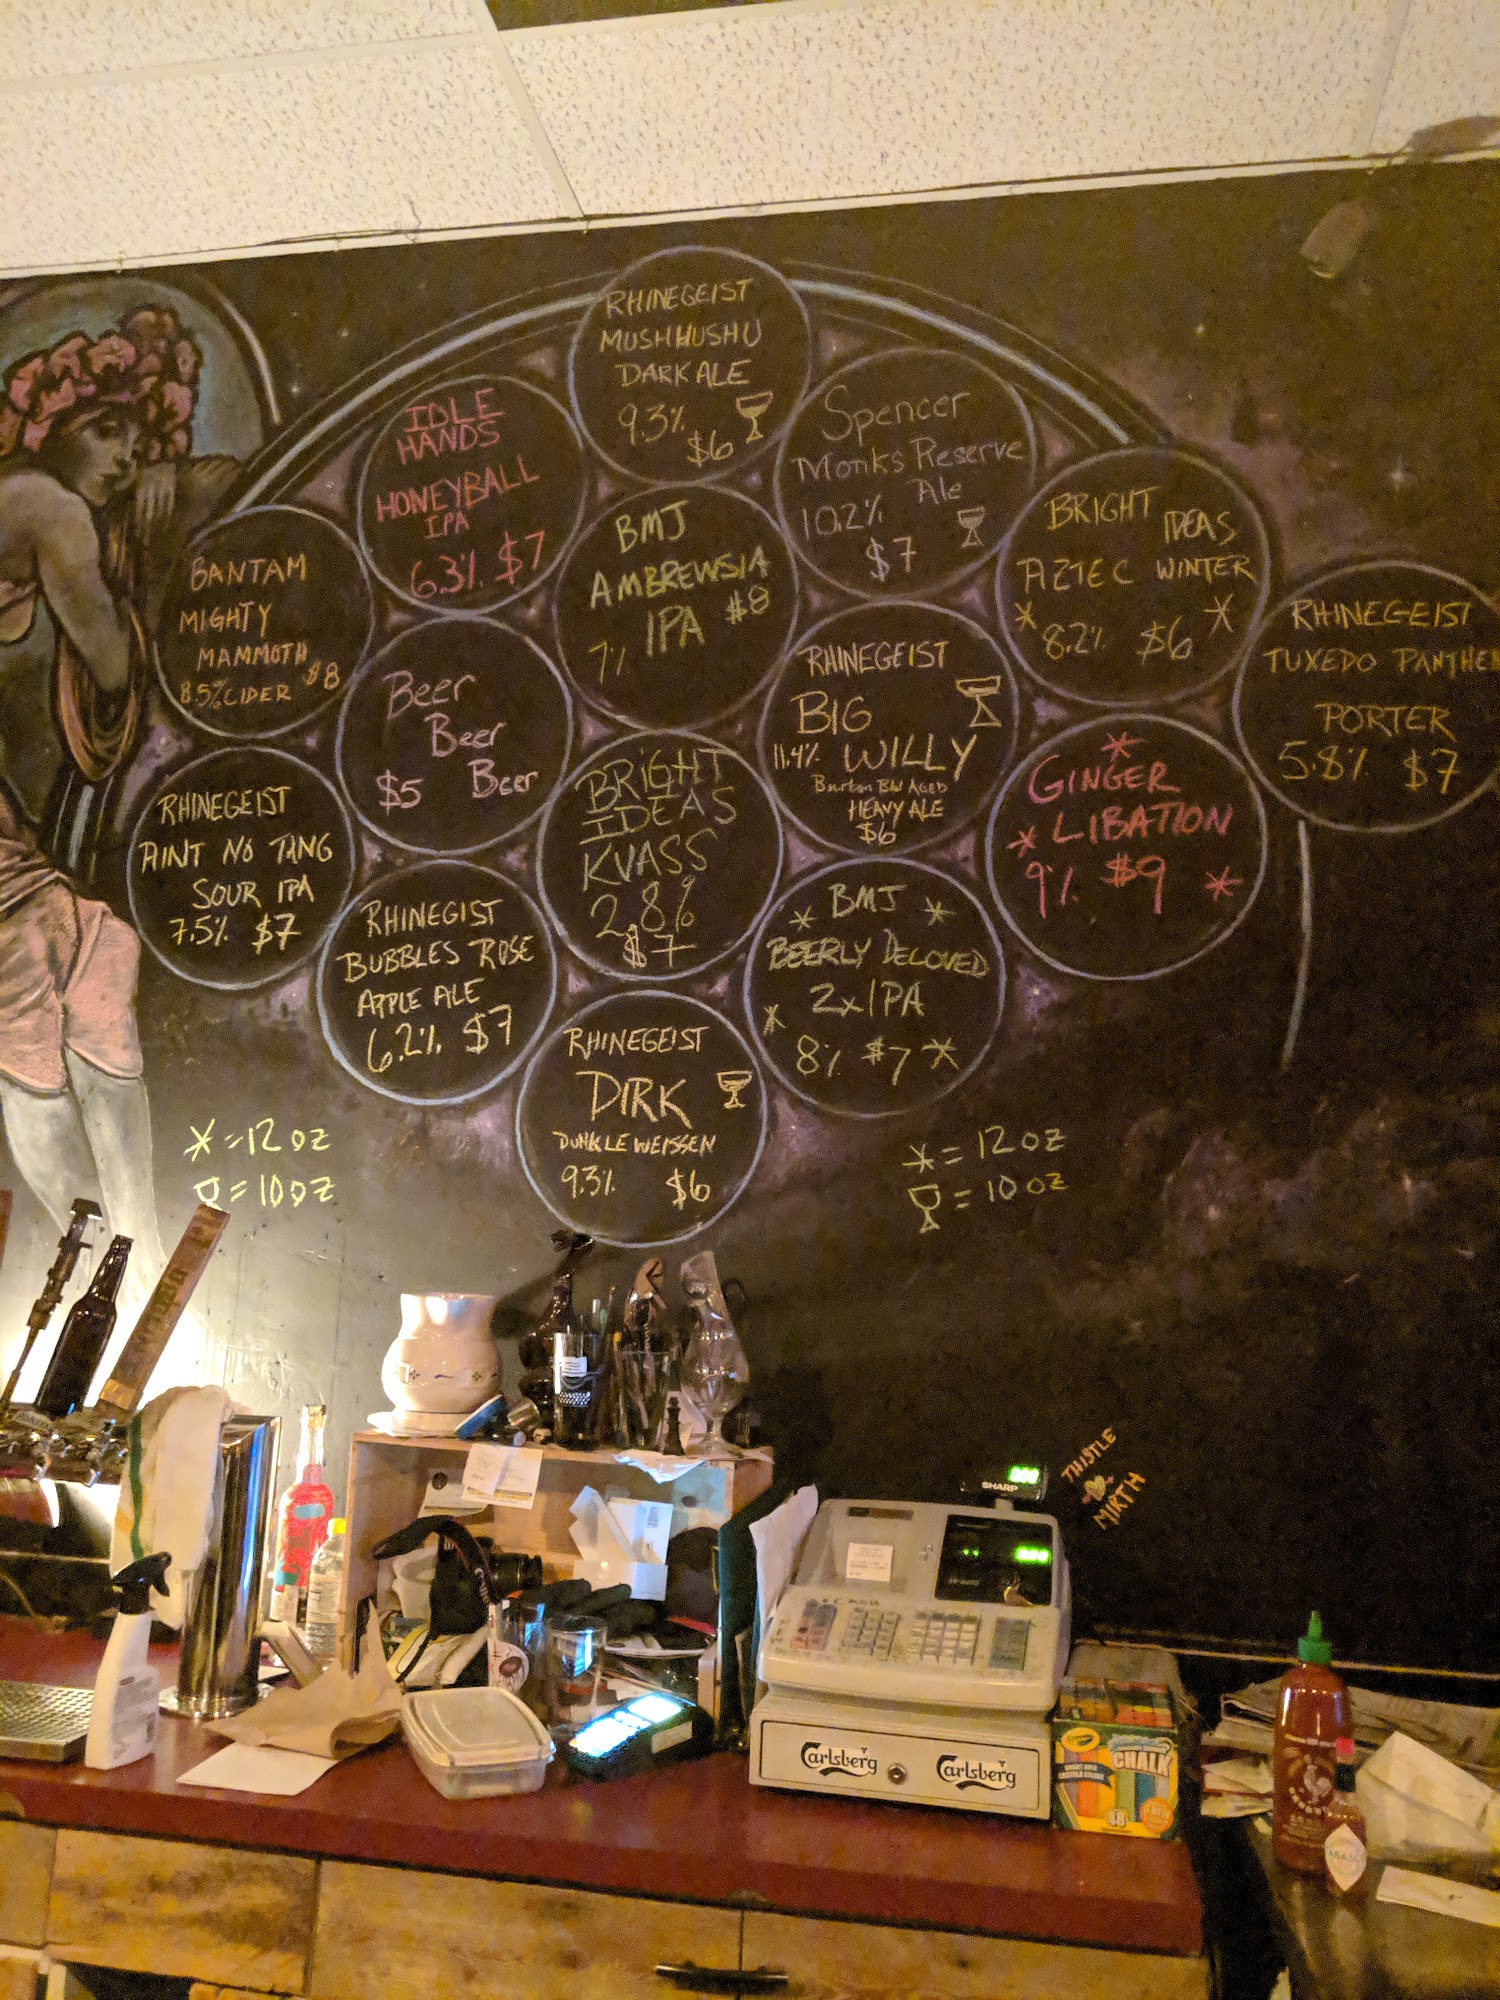 RHINEGEIST
MUSHHUSHU
DARK ALE
9.3% $6
IDLE
HANDS
HONEYBALL
IPA
6.3% $7
Spencer
Monks Reserve
Ale
10.2%
$7
BMJ
AMBREWSIA
IPA $8
7%
BRIGHT IDEAS
AZTEC WINTER
* 8.2% $6 *
BANTAM
MIGHTY
MAMMOTH
8.5% CIDER $8
Beer
Beer
$5 Beer
RHINEGEIST
BIG
11.4% WILLY
Bourbon Brl Aged
HEAVY ALE
$6
RHINEGEIST
TUXEDO PANTHE
PORTER
5.8% $7
*
GINGER
* LIBATION
9% $9 *
BRIGHT
IDEAS
KVASS
2.8%
$7
RHINEGEIST
AINT NO TANG
SOUR IPA
7.5% $7
RHINEGIST
BUBBLES ROSE
APPLE ALE
6.2% $7
* BMJ *
BEERLY BELOVED
2x IPA
*
8% $7 *
RHINEGEIST
DIRK
DUNKLE WEISSEN
9.3% $6
* = 12 oz
= 10 oz
* = 12 oz
= 10 oz
THISTLE
MIRTH
SHARP
0.00
0.00
CASH
Carlsberg
Carlsberg
Crayola
CHALK
48